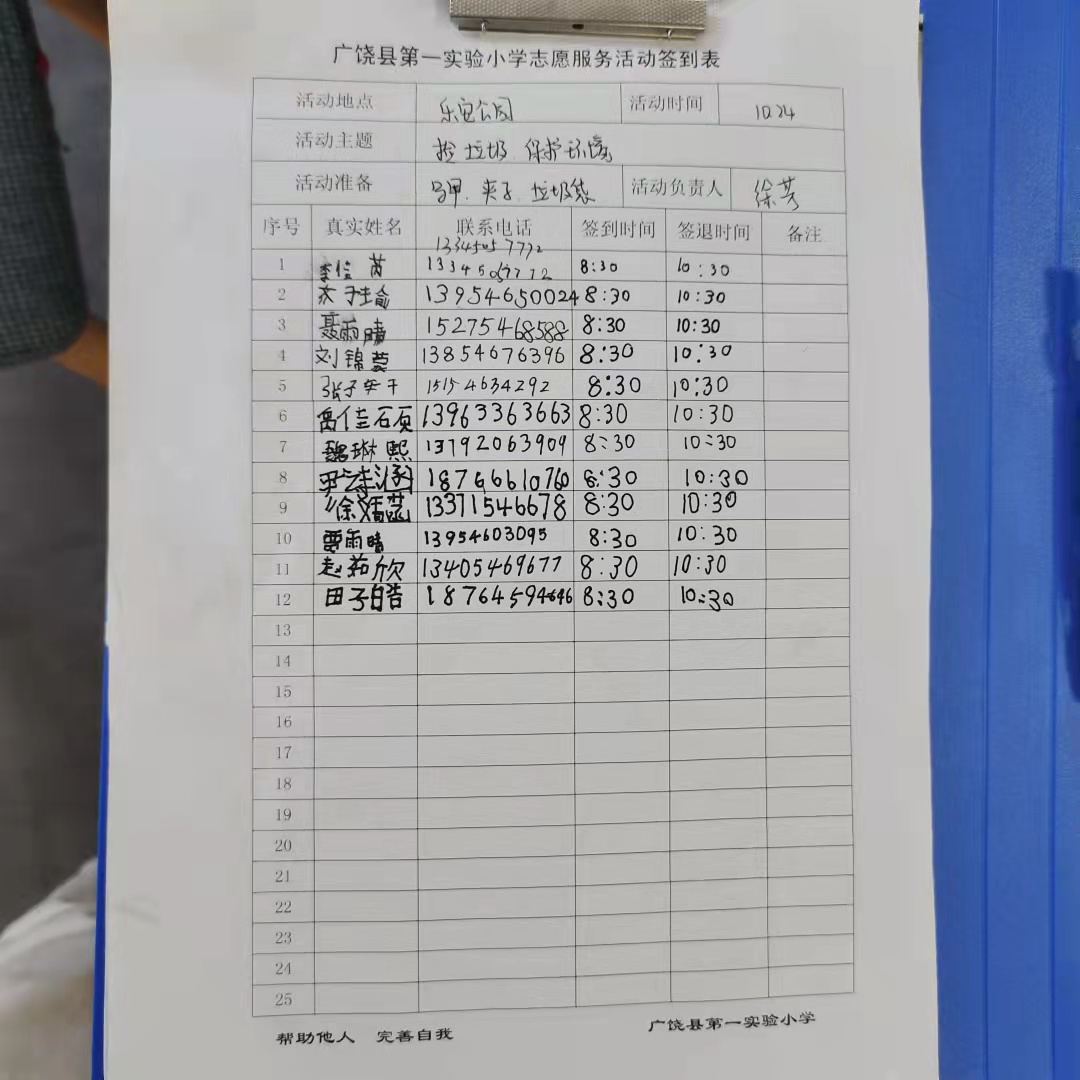 广饶县第一实验小学志愿服务活动签到表
活动地点 乐安公园 活动时间 10.24
活动主题 捡垃圾 保护环境
活动准备 马甲. 夹子. 垃圾袋 活动负责人 徐芳
序号 真实姓名 联系电话 签到时间 签退时间 备注
13345057772
1 李佳芮 13345057772 8:30 10:30
2 13954650024 8:30 10:30
3 聂雨晴 15275468588 8:30 10:30
4 刘锦萱 13854676396 8:30 10:30
5 15154634292 8:30 10:30
6 13963363663 8:30 10:30
7 魏琳熙 13792063909 8:30 10:30
8 8:30 10:30
9 13371546678 8:30 10:30
10 雨晴 13954603095 8:30 10:30
11 赵茹欣 13405469677 8:30 10:30
12 田子皓 18764594646 8:30 10:30
13
14
15
16
17
18
19
20
21
22
23
24
25
帮助他人 完善自我 广饶县第一实验小学